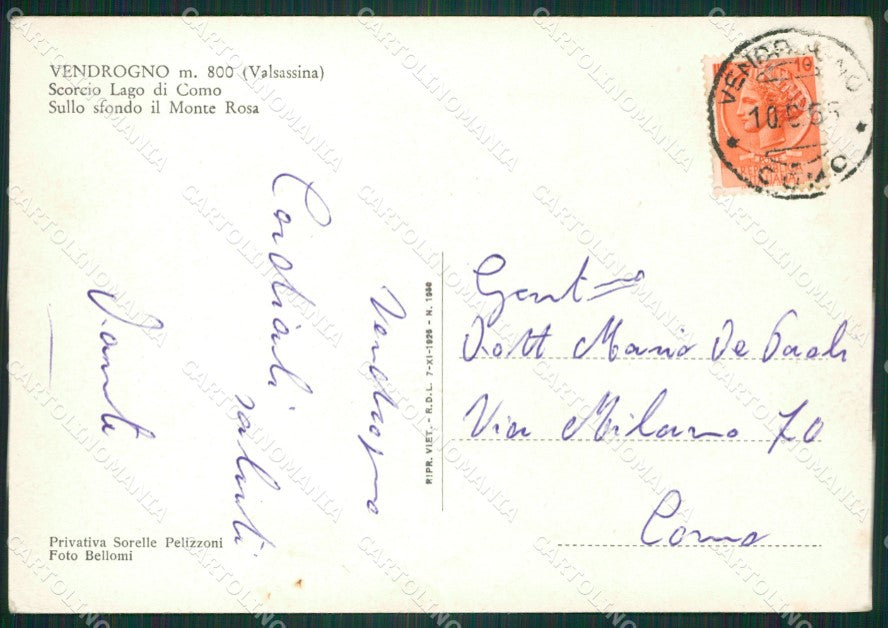 VENDROGNO m. 800 (Valsassina)
Scorcio Lago di Como
Sullo sfondo il Monte Rosa
Vendrogno
Cordiali
saluti
RIPR. VIET. - R.D.L. 7-XI-1925 - N. 1950
VENDROGNO
COMO
Gent mo
Dott Mario De Paoli
Via Milano 70
Como
Privativa Sorelle Pelizzoni
Foto Bellomi
CARTOLINOMANIA